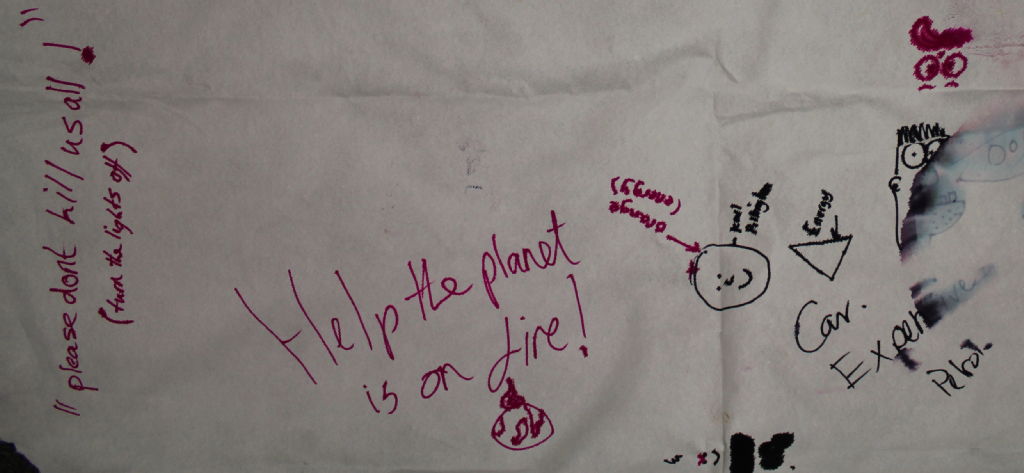 "please dont kill us all!"
(turn the lights off)
Help the planet
is on fire!
orange
(energy)
Energy
Car.
Expensive
Petrol.